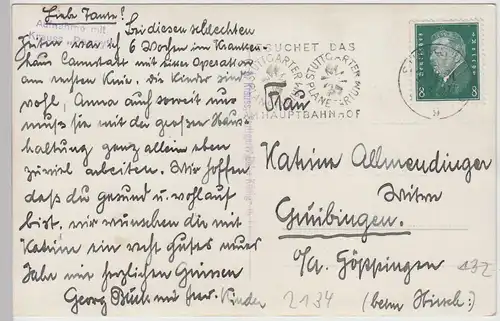 Liebe Tante!
Aufnahme mit
Bei diesen schlechten
Zeiten war ich 6 Wochen im Kranken-
haus Cannstatt mit einer Operation
am rechten Knie. Die Kinder sind
wohl, Anna auch soweit nur
muß sie mit der großen Haus-
haltung ganz allein eben
zuviel arbeiten. Wir hoffen
daß du gesund u. wohlauf
bist, wir wünschen dir mit
Katrine ein recht gutes neues
Jahr mit herzlichen Grüssen
Georg Bück mit Frau. Kinder
BESUCHET DAS
STUTTGARTER
PLANETARIUM
HAUPTBAHNHOF
Deutsches Reich
8 8
Frau
Katrine Allmendinger
Witwe
Gruibingen.
O/A. Göppingen
(beim Hirsch.)
2134
432